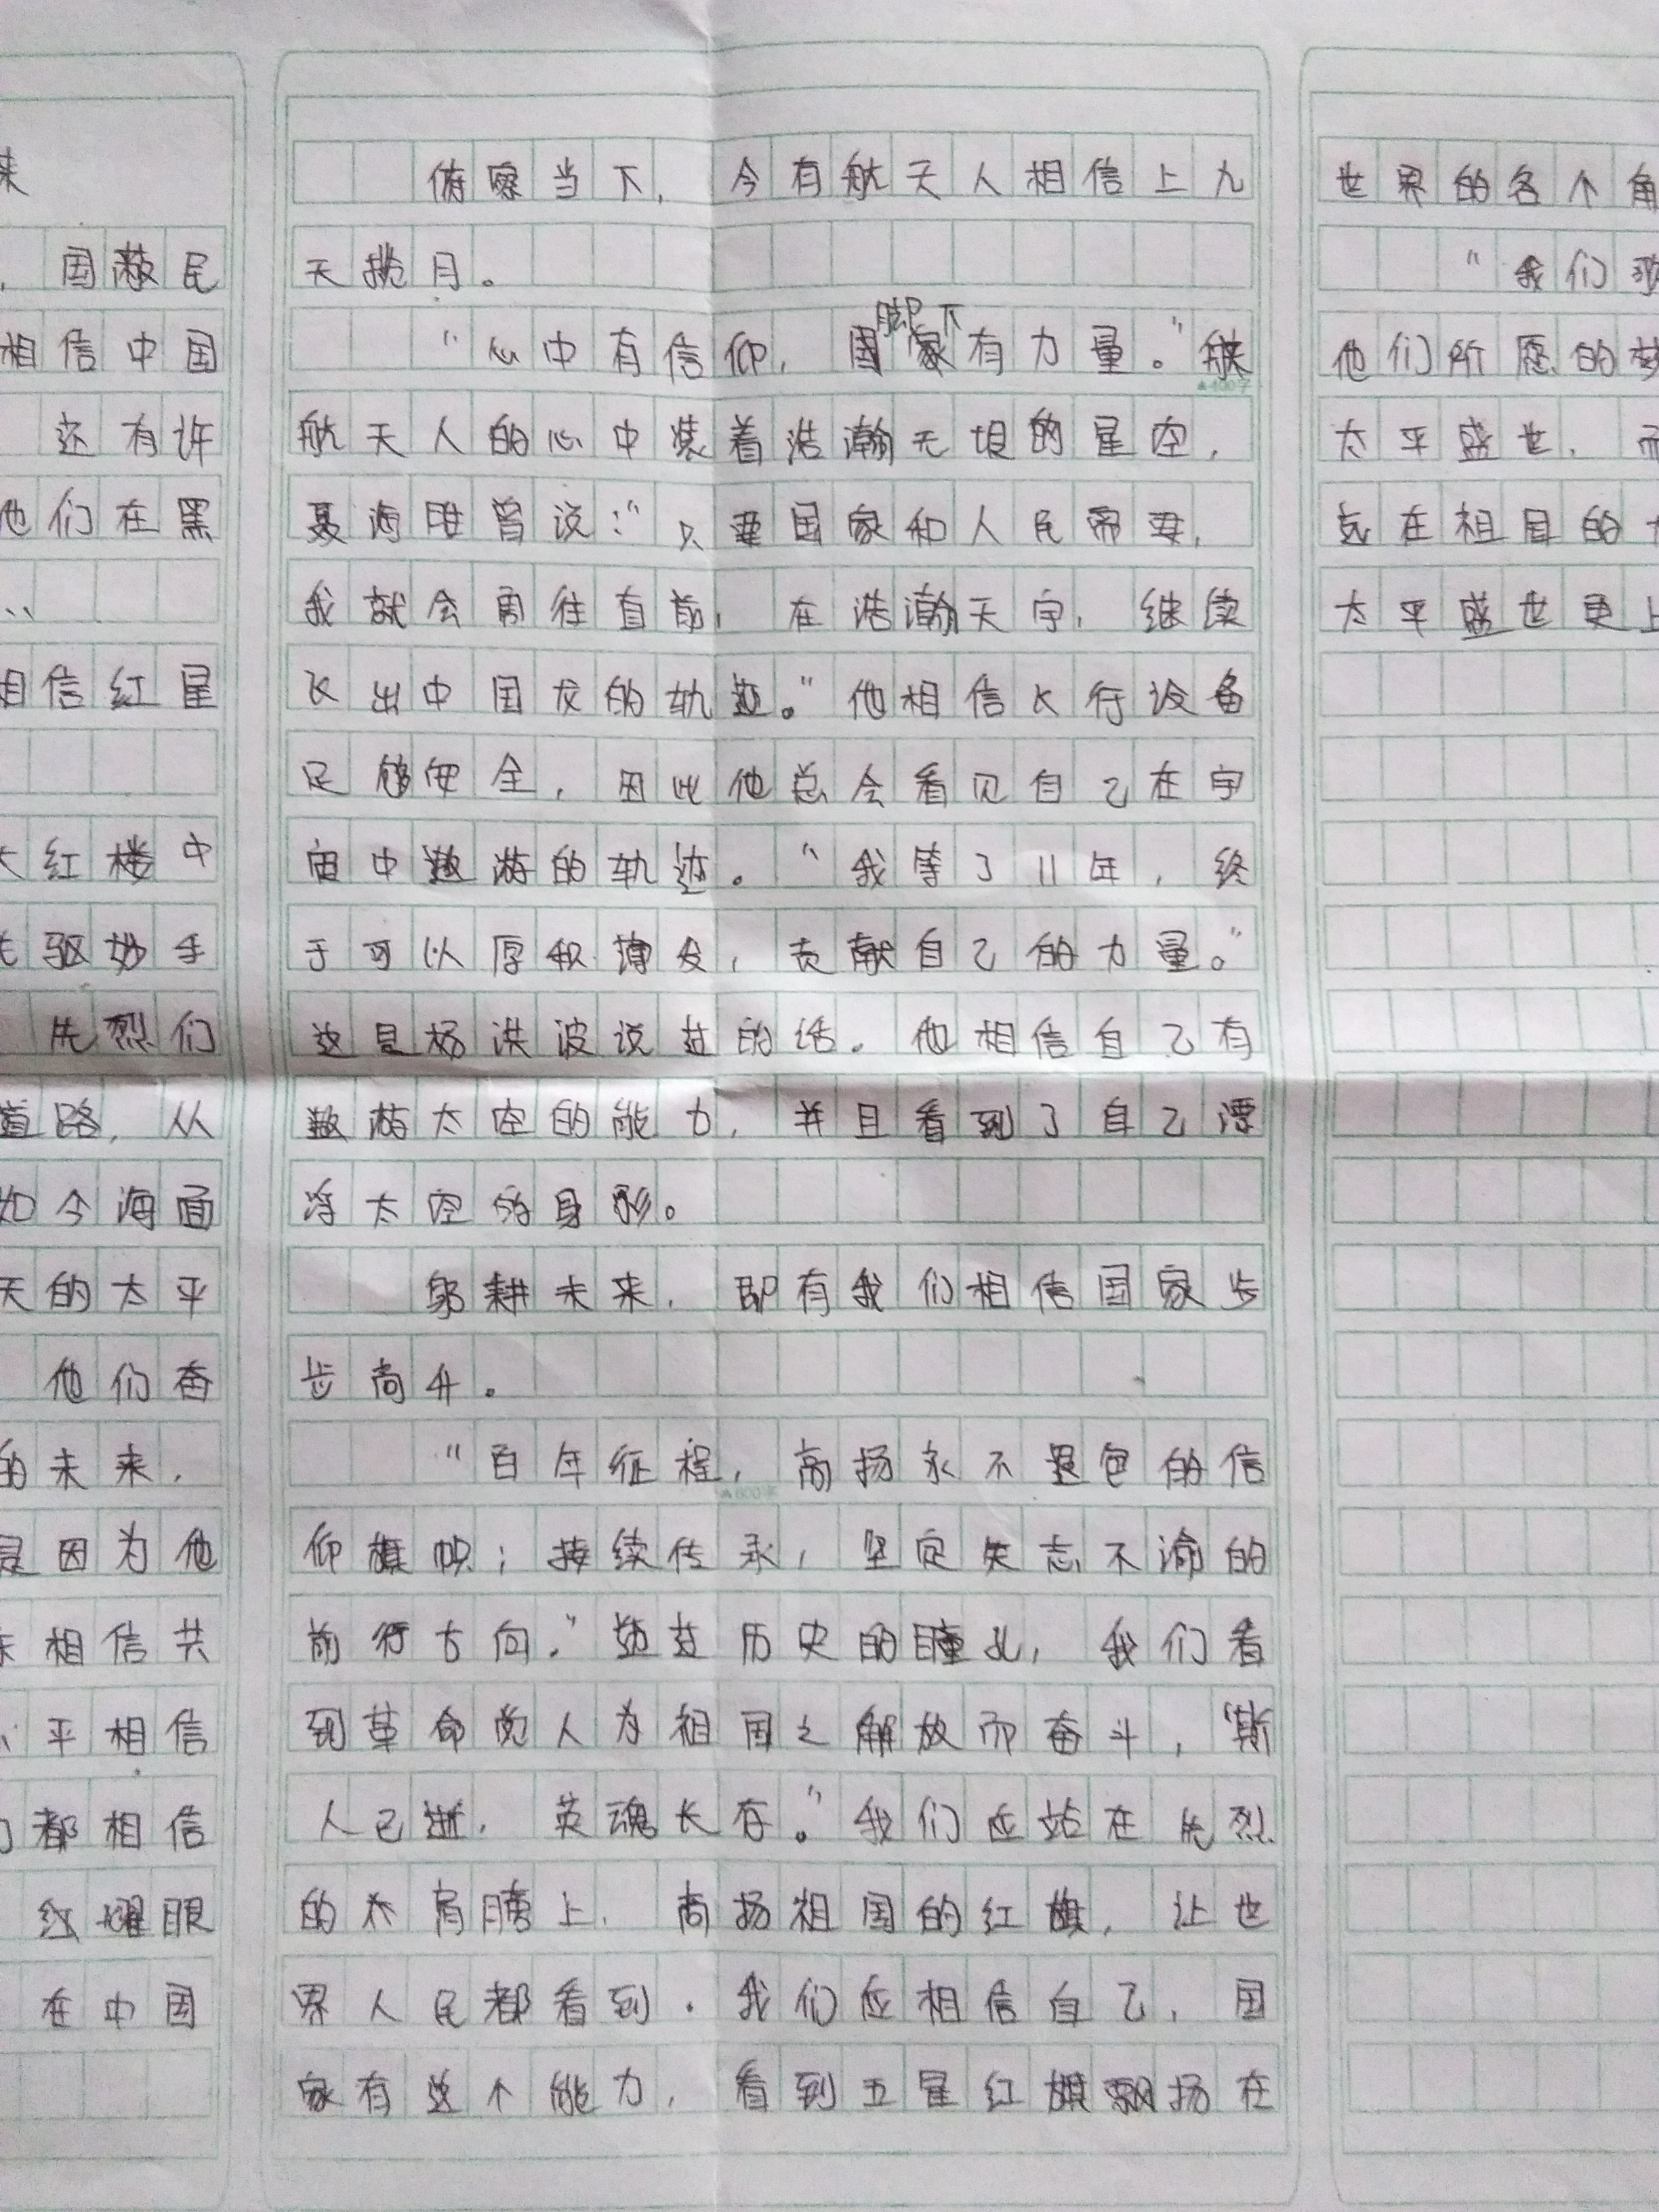 来
，国蔽民
相信中国
还有许
他们在黑
相信红星
红楼中
先驱妙手
先烈们
道路，从
如今海面
天的太平
他们奋
的未来，
是因为他
相信共
平相信
们都相信
红耀眼
在中国
俯察当下，今有航天人相信上九
天揽月。
“心中有信仰，脚下有力量。”
航天人的心中装着浩瀚无垠的星空，
聂海胜曾说：“只要国家和人民需要，
我就会勇往直前，在浩瀚天宇，继续
飞出中国龙的轨迹。”他相信飞行设备
足够安全，因此他总会看见自己在宇
宙中遨游的轨迹。“我等了11年，终
于可以厚积薄发，贡献自己的力量。”
这是杨洪波说过的话。他相信自己有
遨游太空的能力，并且看到了自己漂
浮太空的身影。
躬耕未来，即有我们相信国家步
步高升。
“百年征程，高扬永不退色的信
仰旗帜；接续传承，坚定矢志不渝的
前行方向。”透过历史的瞳孔，我们看
到革命党人为祖国之解放而奋斗，“斯
人已逝，英魂长存。”我们应站在先烈
的肩膀上，高扬祖国的红旗，让世
界人民都看到。我们应相信自己，国
家有这个能力，看到五星红旗飘扬在
世界的各个角
“我们
他们所愿的梦
太平盛世，而
在祖国的
太平盛世更上
▲400字
▲600字